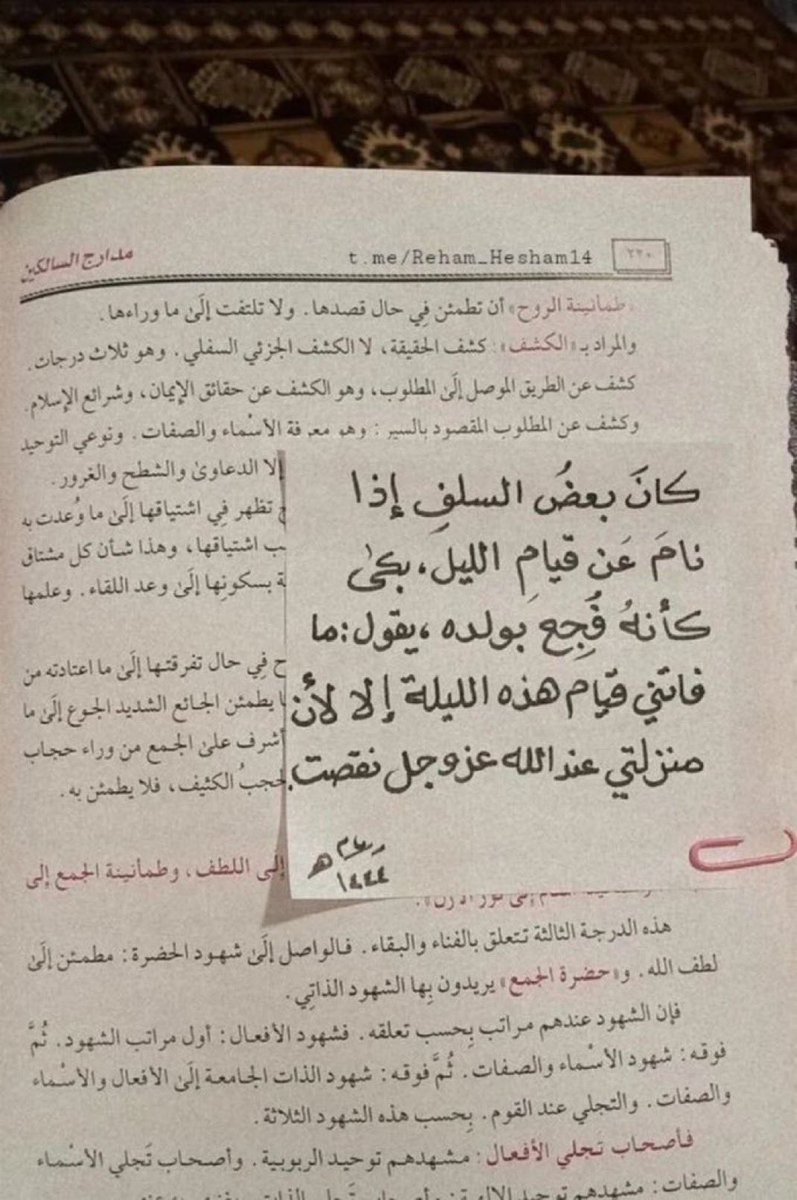 مدارج السالكين t.me/Reham_Hesham14 ٢٢٠
«طمأنينة الروح» أن تطمئن فِي حال قصدها. ولا تلتفت إلَىٰ ما وراءها.
والمراد بـ «الكشف»: كشف الحقيقة، لا الكشف الجزئي السفلي. وهو ثلاث درجات.
كشف عن الطريق الموصل إلَىٰ المطلوب، وهو الكشف عن حقائق الإيمان، وشرائع الإسلام.
وكشف عن المطلوب المقصود بالسير: وهو معرفة الأسْماء والصفات. ونوعي التوحيد
إلا الدعاوىٰ والشطح والغرور.
تظهر فِي اشتياقها إلَىٰ ما وُعدت به
اشتياقها، وهذا شأن كل مشتاق
بسكونِها إلَىٰ وعد اللقاء. وعلمها
فِي حال تفرقتـها إلَىٰ ما اعتادته من
يطمئن الجائع الشديد الجوع إلَىٰ ما
أشرف علىٰ الجمع من وراء حجاب
الكثيف، فلا يطمئن به.
كانَ بعضُ السلفِ إذا
نامَ عَن قيامِ الليل، بكىٰ
كأنهُ فُجِعَ بولده، يقول: ما
فاتني قيام هذه الليلة إلا لأن
منزلتي عند الله عز وجل نقصت.
رهام
١٤٤٤ هـ
إلَى اللطف، وطمأنينة الجمع إلى
هذه الدرجة الثالثة تتعلق بالفناء والبقاء. فالواصل إلَىٰ شهود الحضرة: مطمئن إلَىٰ
لطف الله. و«حضرة الجمع» يريدون بِها الشهود الذاتِي.
فإن الشهود عندهم مراتب بِحسب تعلقه. فشهود الأفعال: أول مراتب الشهود. ثُمَّ
فوقه: شهود الأسْماء والصفات. ثُمَّ فوقه: شهود الذات الجامعة إلَىٰ الأفعال والأسْماء
والصفات. والتجلي عند القوم. بِحسب هذه الشهود الثلاثة.
فأصحاب تجلي الأفعال: مشهدهم توحيد الربوبية. وأصحاب تَجلي الأسْماء
والصفات: مشهدهم توحيد الإلهية